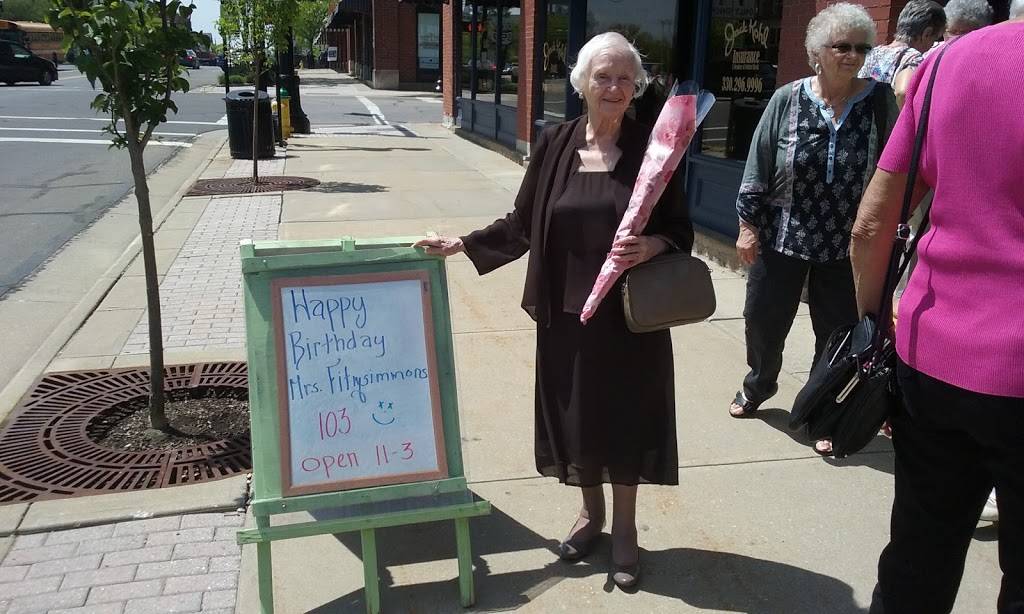 Happy
Birthday
Mrs. Fitzsimmons
103
open 11-3
Insurance
330.296.9996